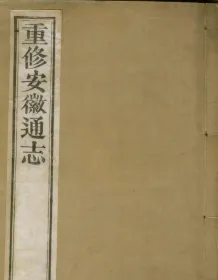 重修安徽通志